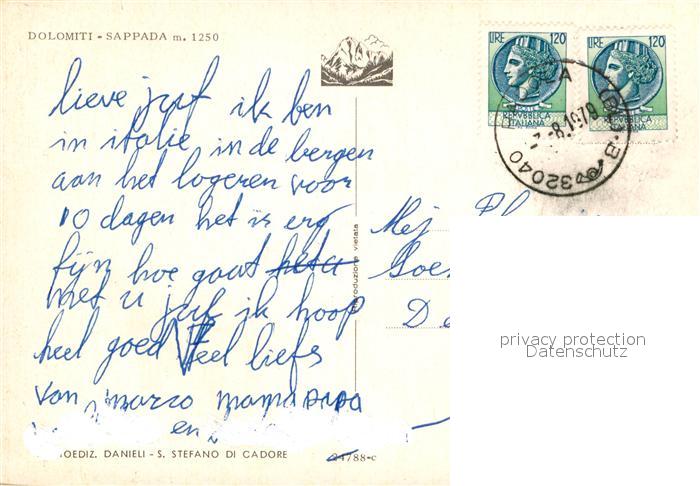 DOLOMITI - SAPPADA m. 1250
LIRE 120
POSTE
REPVBBLICA
ITALIANA
LIRE 120
REPVBBLICA
ITALIANA
-8.1979
32040
lieve juf ik ben
in italie in de bergen
aan het logeren voor
10 dagen het is erg
fijn hoe gaat
met u juf ik hoop
heel goed Veel liefs
van marco mama papa
en
Mej
riproduzione vietata
FOEDIZ. DANIELI - S. STEFANO DI CADORE
24788-c
privacy protection
Datenschutz